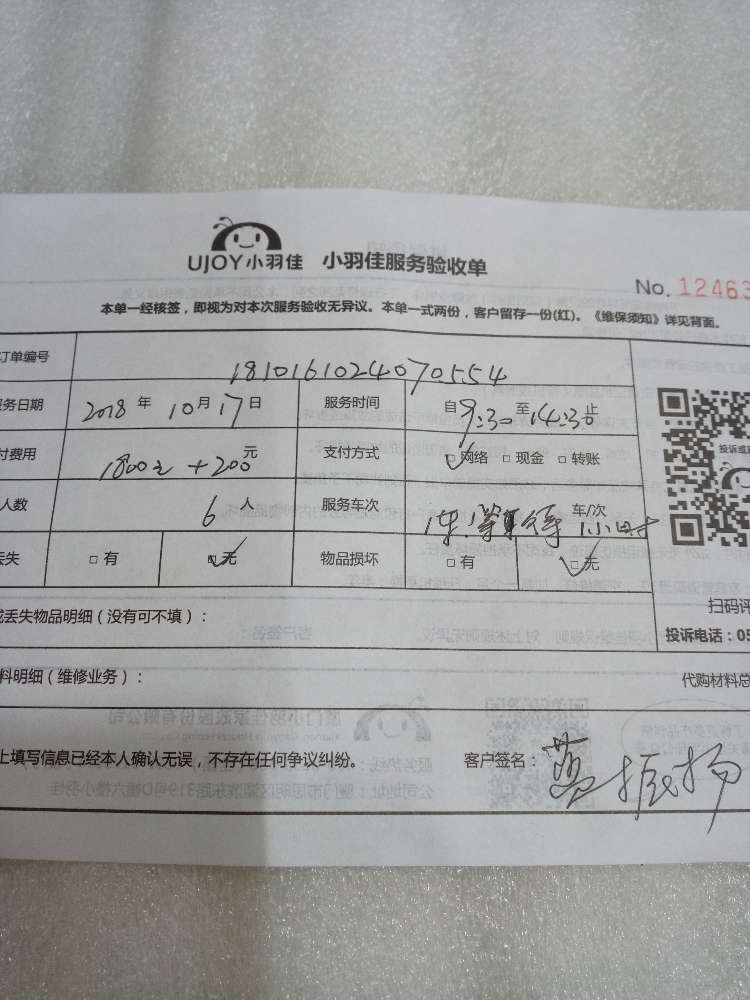 UJOY小羽佳 小羽佳服务验收单
No. 12463
本单一经核签，即视为对本次服务验收无异议。本单一式两份，客户留存一份(红)。《维保须知》详见背面。
订单编号 1810161024070554
务日期 2018 年 10 月 17 日 服务时间 自 9:30 至 14:30 止
付费用 1800元 + 200 元 支付方式 网络 现金 转账
人数 6 人 服务车次 1车 等待 车/次 1小时
丢失 有 无 物品损坏 有 无
投诉或
扫码评
投诉电话：05
或丢失物品明细（没有可不填）：
料明细（维修业务）： 代购材料总
上填写信息已经本人确认无误，不存在任何争议纠纷。 客户签名： 振扬